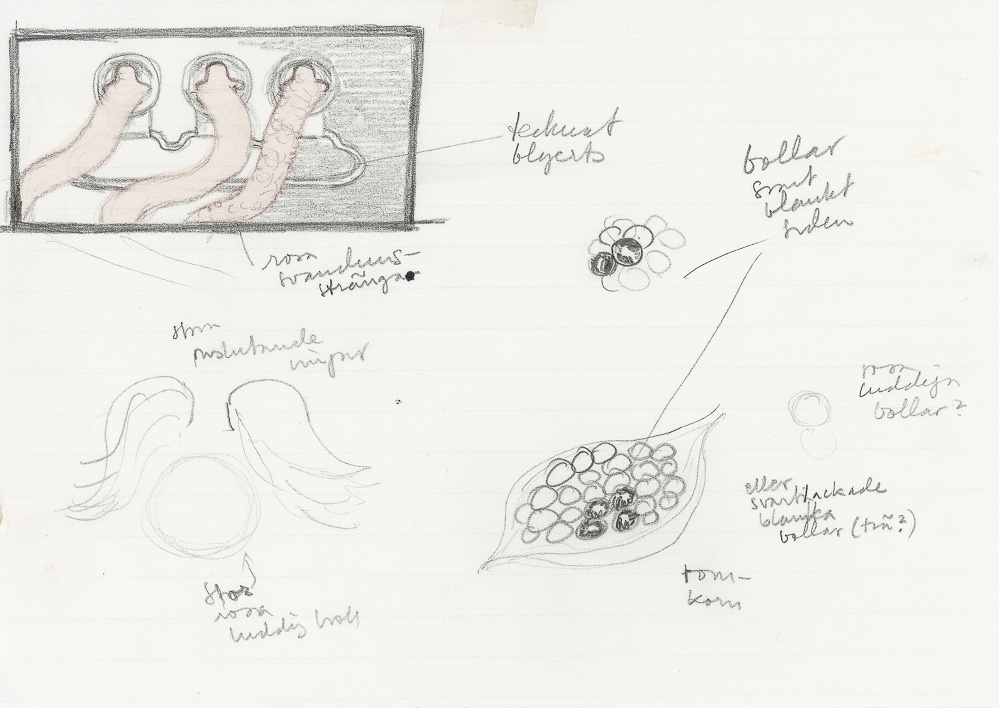 tecknat
blyerts
bollar
svart
blankt
siden
rosa
svanduns-
strängar
stora
vingar
rosa
luddiga
bollar?
eller
svartlackade
blanka
bollar (trä?)
stor
rosa
luddig boll
tom-
korg